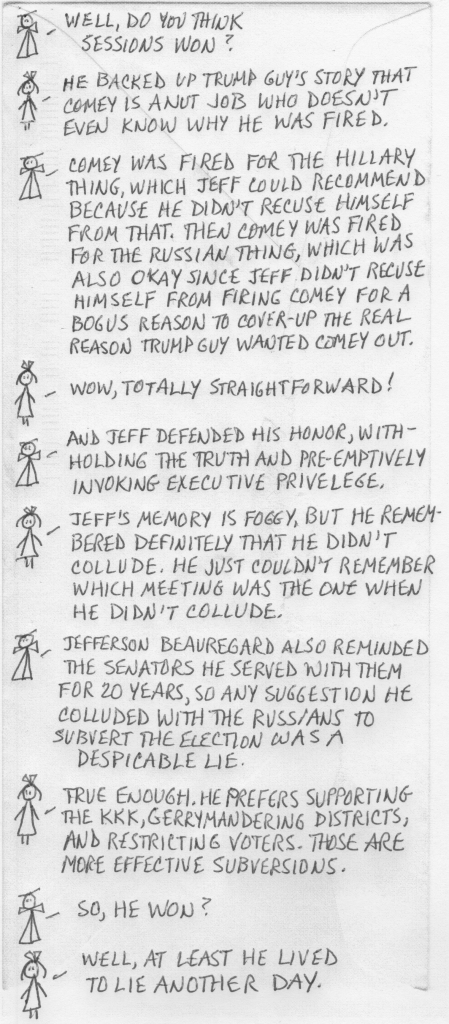 WELL, DO YOU THINK
SESSIONS WON?
HE BACKED UP TRUMP GUY'S STORY THAT
COMEY IS A NUT JOB WHO DOESN'T
EVEN KNOW WHY HE WAS FIRED.
COMEY WAS FIRED FOR THE HILLARY
THING, WHICH JEFF COULD RECOMMEND
BECAUSE HE DIDN'T RECUSE HIMSELF
FROM THAT. THEN COMEY WAS FIRED
FOR THE RUSSIAN THING, WHICH WAS
ALSO OKAY SINCE JEFF DIDN'T RECUSE
HIMSELF FROM FIRING COMEY FOR A
BOGUS REASON TO COVER-UP THE REAL
REASON TRUMP GUY WANTED COMEY OUT.
WOW, TOTALLY STRAIGHTFORWARD!
AND JEFF DEFENDED HIS HONOR, WITH-
HOLDING THE TRUTH AND PRE-EMPTIVELY
INVOKING EXECUTIVE PRIVELEGE.
JEFF'S MEMORY IS FOGGY, BUT HE REMEM-
BERED DEFINITELY THAT HE DIDN'T
COLLUDE. HE JUST COULDN'T REMEMBER
WHICH MEETING WAS THE ONE WHEN
HE DIDN'T COLLUDE.
JEFFERSON BEAUREGARD ALSO REMINDED
THE SENATORS HE SERVED WITH THEM
FOR 20 YEARS, SO ANY SUGGESTION HE
COLLUDED WITH THE RUSSIANS TO
SUBVERT THE ELECTION WAS A
DESPICABLE LIE.
TRUE ENOUGH. HE PREFERS SUPPORTING
THE KKK, GERRYMANDERING DISTRICTS,
AND RESTRICTING VOTERS. THOSE ARE
MORE EFFECTIVE SUBVERSIONS.
SO, HE WON?
WELL, AT LEAST HE LIVED
TO LIE ANOTHER DAY.